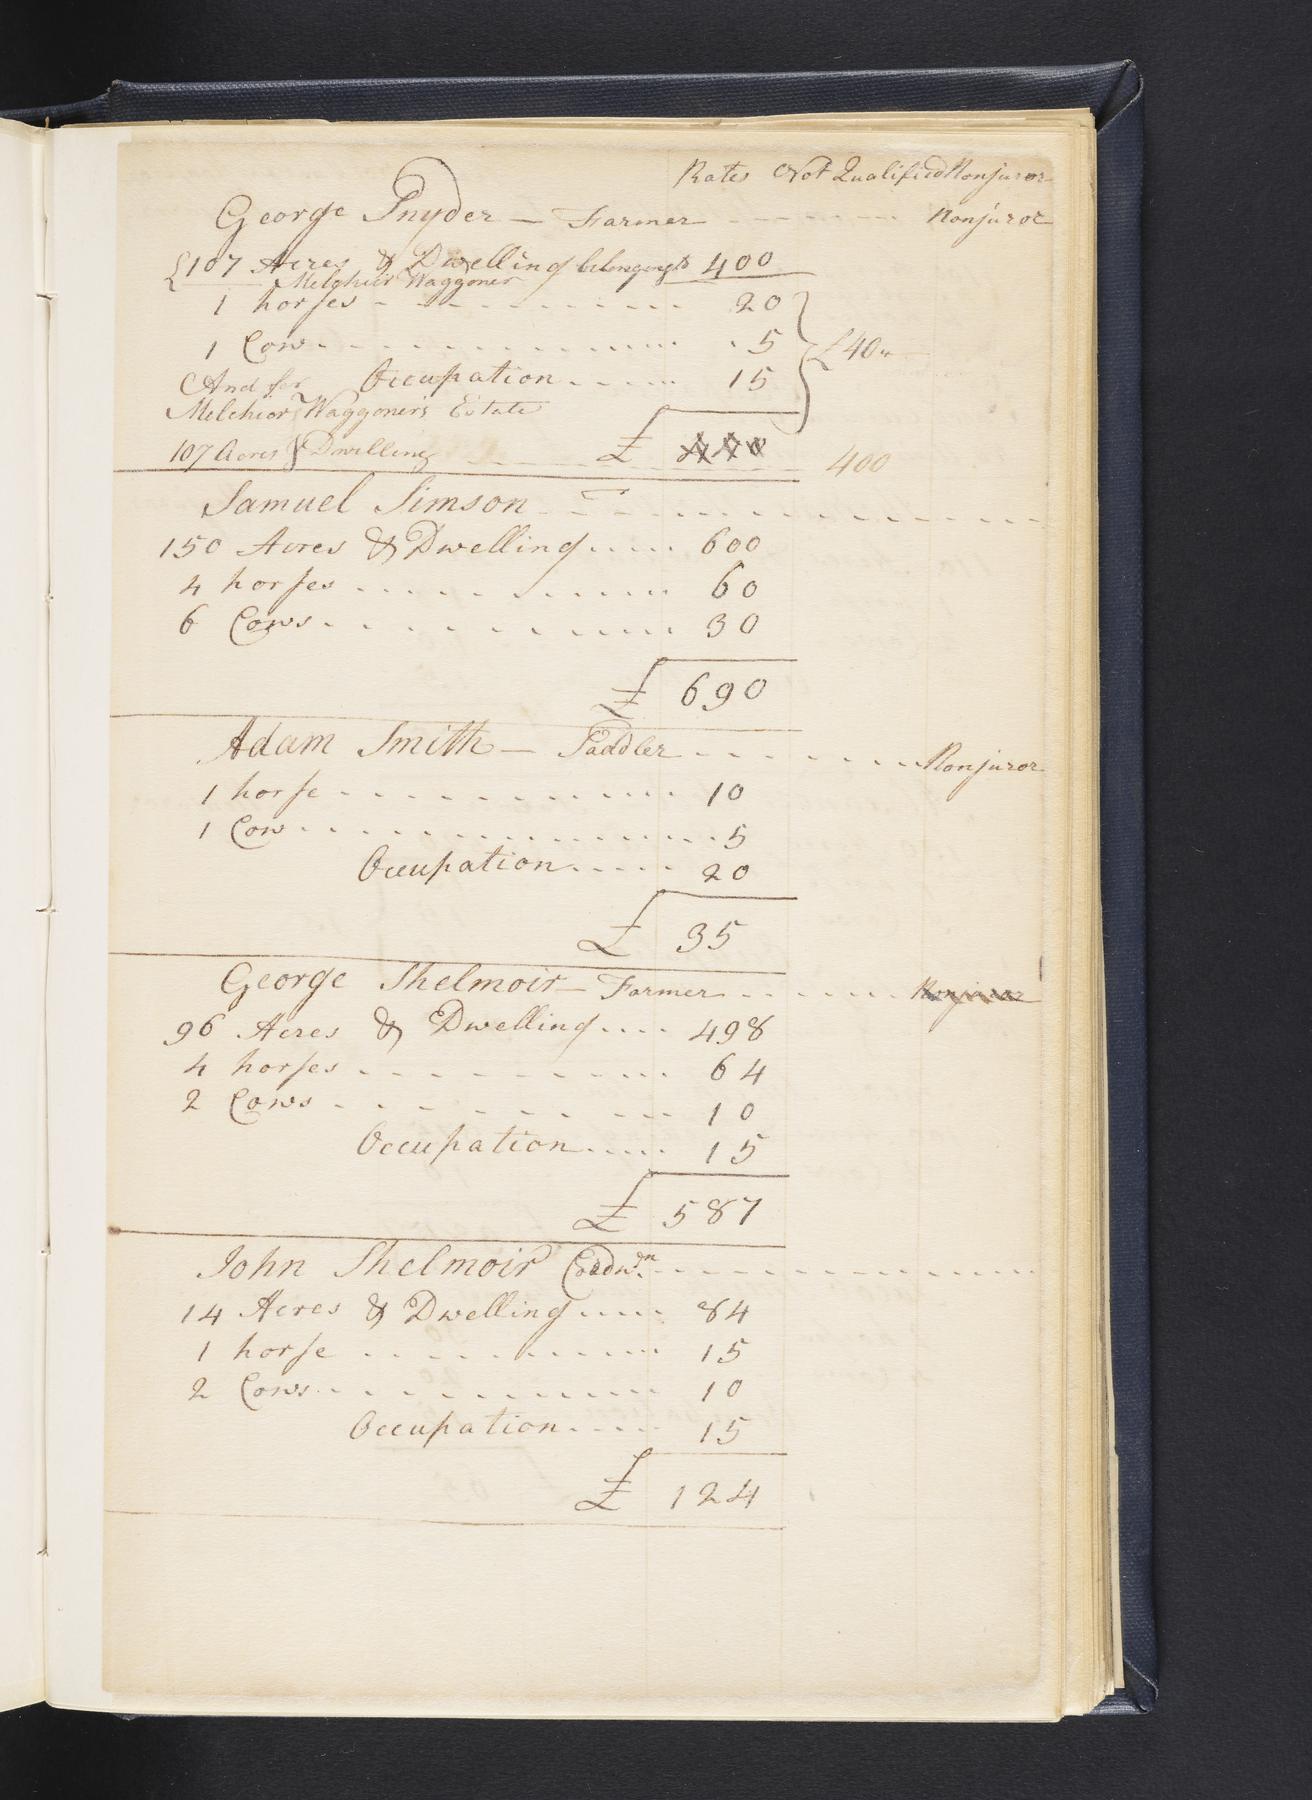 Rates Not Qualified Nonjuror
George Snyder — Farmer Nonjuror
£107 Acres & Dwelling belonging to 400
Melchior Waggoner
1 horses 20
1 Cow 5 £40
And for Occupation 15
Melchior Waggoner's Estate
107 Acres & Dwelling £ 400
Samuel Simson
150 Acres & Dwelling 600
4 horses 60
6 Cows 30
£ 690
Adam Smith — Saddler Nonjuror
1 horse 10
1 Cow 5
Occupation 20
£ 35
George Shelmoir — Farmer Nonjuror
96 Acres & Dwelling 498
4 horses 64
2 Cows 10
Occupation 15
£ 587
John Shelmoir Cordwn
14 Acres & Dwelling 84
1 horse 15
2 Cows 10
Occupation 15
£ 124